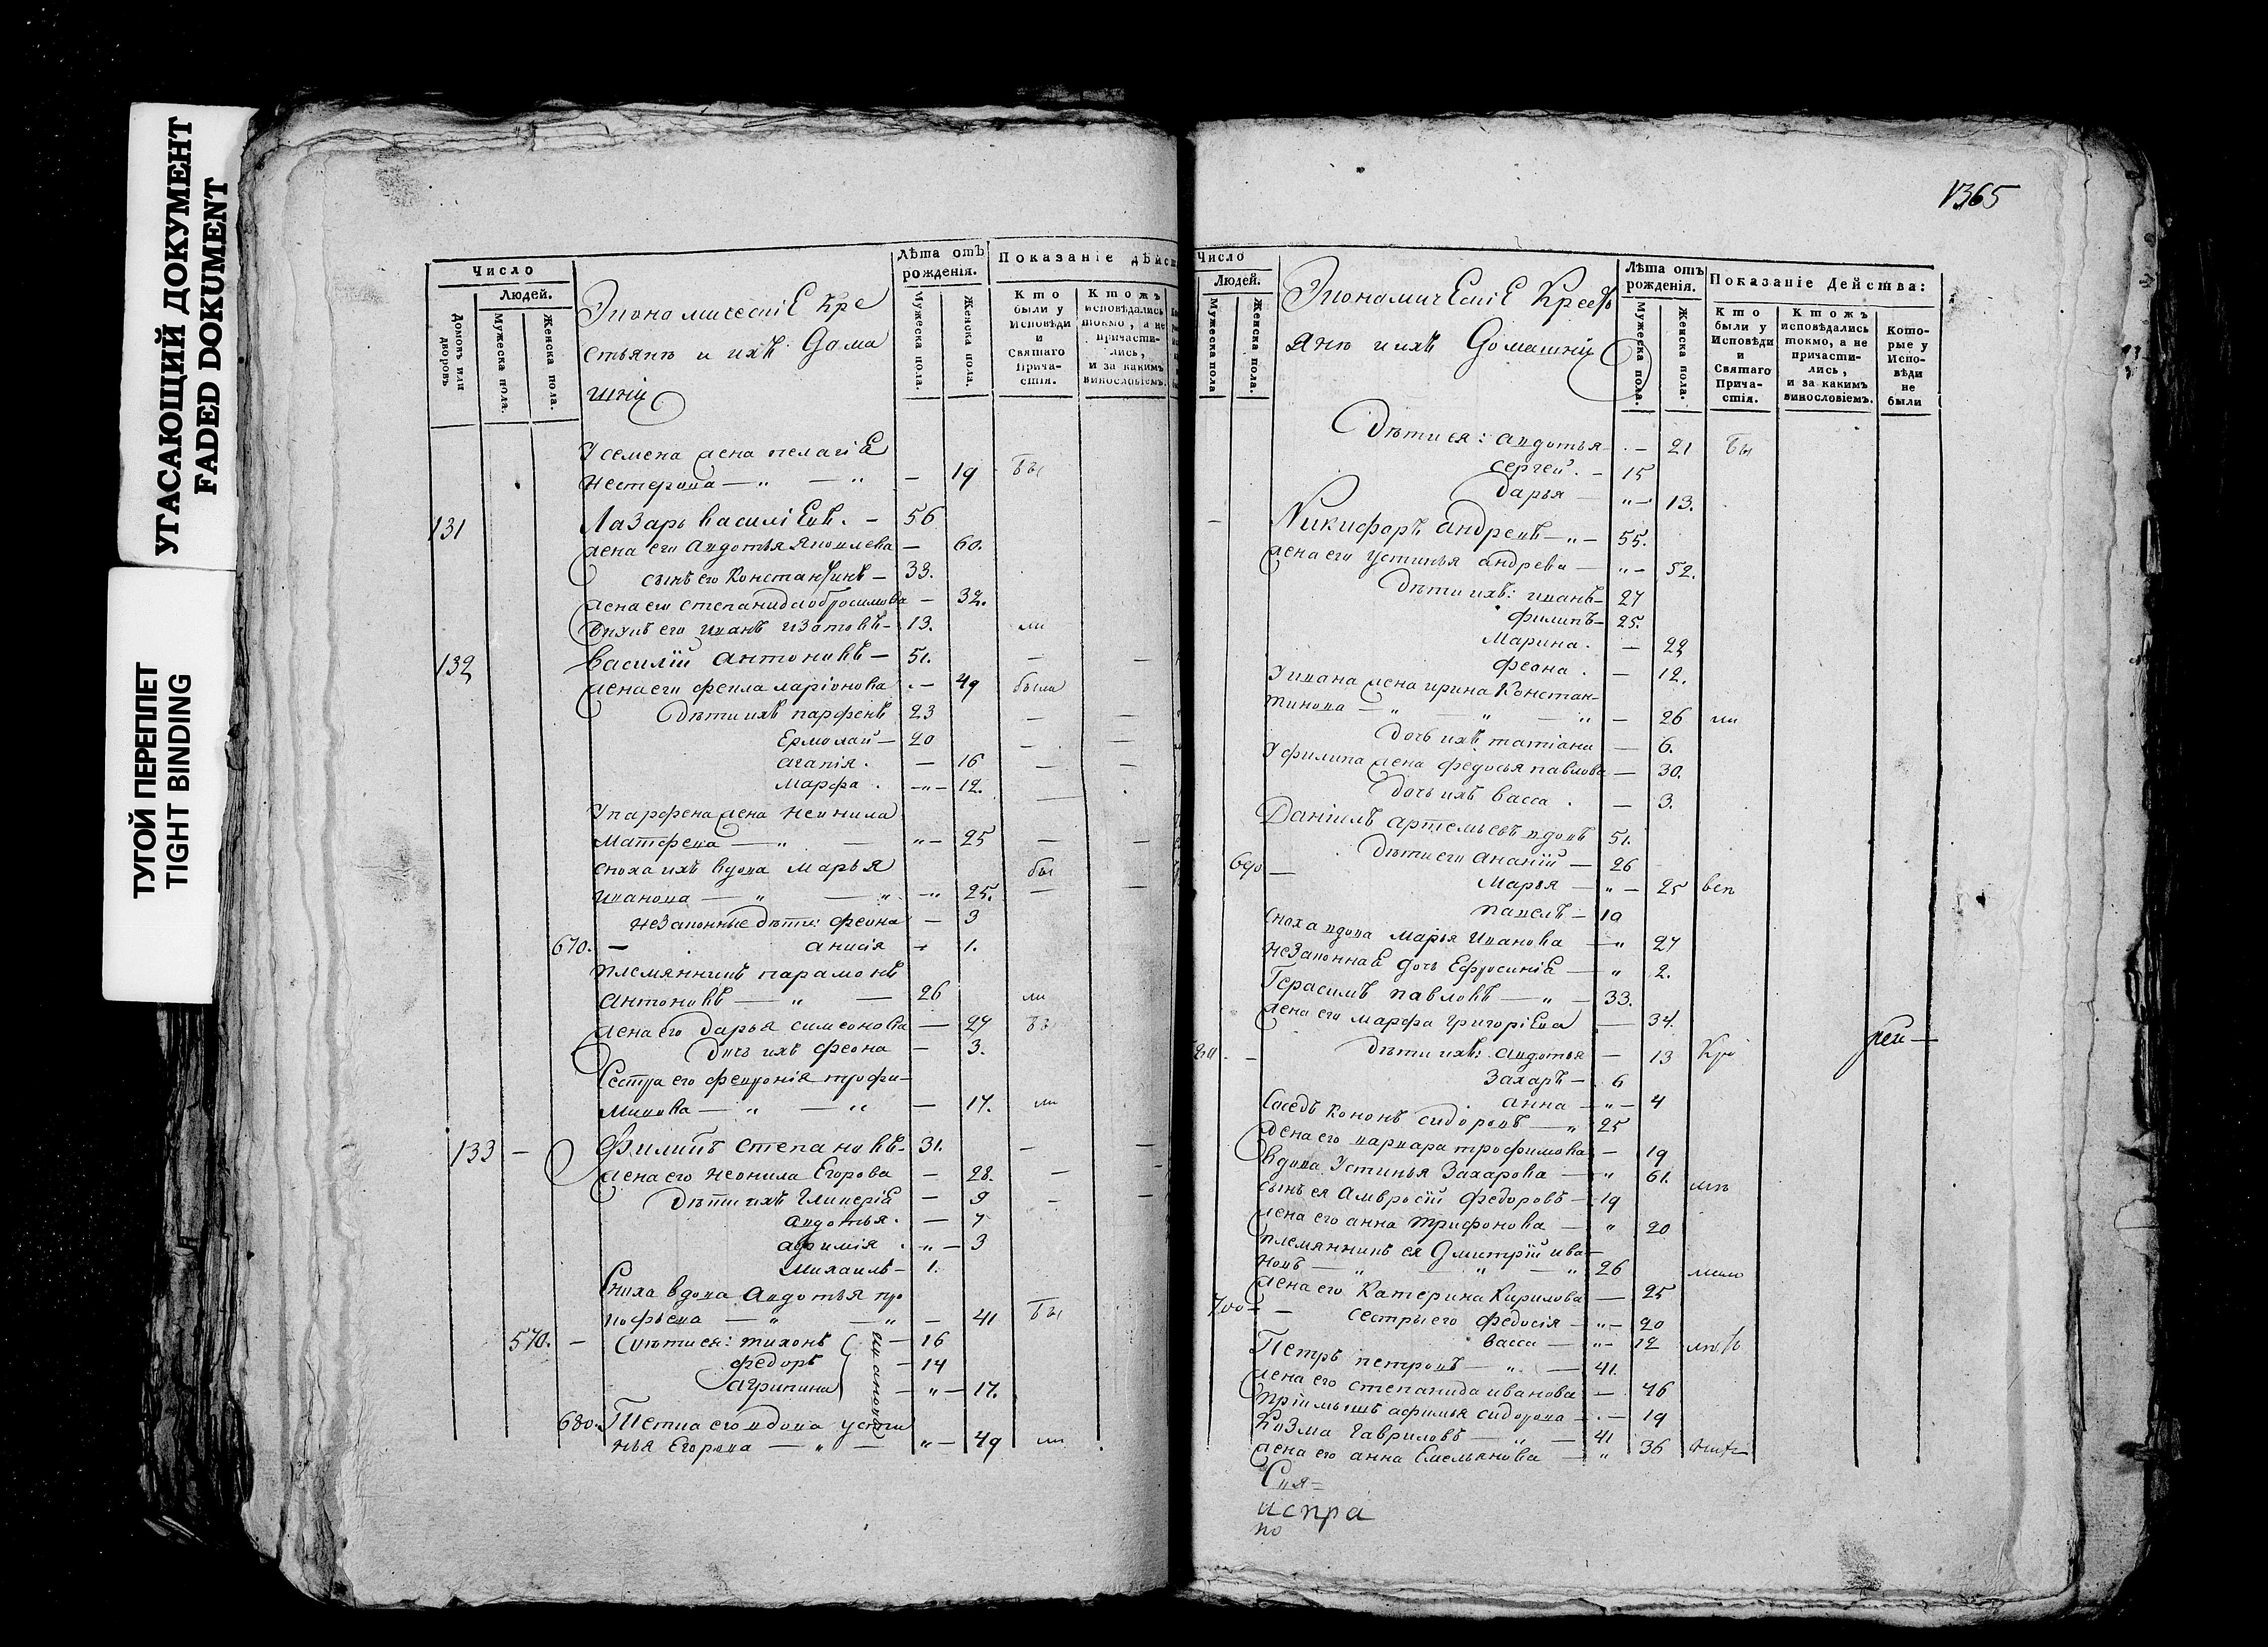 УГАСАЮЩИЙ ДОКУМЕНТ
FADED DOKUMENT
ТУГОЙ ПЕРЕПЛЕТ
TIGHT BINDING
Число
Людей.
Домовъ или дворовъ
Мужеска пола.
Женска пола.
Экономическіе Кре
стьянъ и ихъ Дома
шніи
Лѣта отъ рожденія.
Мужеска пола.
Женска пола.
Показаніе дѣйс
Кто были у Исповѣди и Святаго Прича-стія.
Ктожъ исповѣдались токмо, а не причасти-лись, и за какимъ винословіемъ.
У семена жена пелагіЕ
нестерова — „ — „ — 19 бы
131 Лазарь василіЕвъ. — 56
жена его авдотья Яковлева — 60.
сынъ его Константинъ — 33.
жена его степанида обросимова — 32.
внукъ его иванъ изотовъ — 13. ли
132 василій антоновъ — 51. — —
жена его фекла ларіонова . — 49 были
Дѣти ихъ парфенъ 23 — —
Ермолай — 20 — —
агапія . — 16 — —
Марфа . — „ — 12. —
У парфена жена неонила
Матфева — „ — „ — 25 — —
сноха ихъ вдова марья бы
иванова — „ — „ — „ 25. — —
незаконные дѣти: феона — 3
670. — анисія — 1.
племянникъ парамонъ
антоновъ — „ — 26 ли
жена его дарья симеонова — 27 бы
дочь ихъ феона — 3.
Сестра его февронія трофи-
мовова — „ — „ — 17. ли
133 — Филипъ степановъ — 31. — —
жена его неонила Егорова — 28. —
Дѣти ихъ ГликеріЕ — 9 — —
авдотья . — 7
афимія . „ — 3
Михаилъ — 1.
Сноха вдова авдотья про
кофьева — „ — „ — 41 бы
570. — Дѣти ея: тихонъ — 16
федоръ — 14
агрипина — „ — 17.
ивановы
680. Тетка его вдова усти
нья Егорова — „ — „ — 49 ли
1365
Число
Людей.
Мужеска пола
Женска пола.
ЭкономичЕскіЕ Крест
янъ и ихъ Домашніи
Лѣта отъ рожденія.
Мужеска пола.
Женска пола.
Показаніе Действа:
Кто были у Исповѣди и Святаго Прича-стія.
Ктожъ исповѣдались токмо, а не причасти-лись, и за какимъ винословіемъ.
Кото-рые у Испо-вѣди не были
Дѣти ея: авдотья — . — 21 бы
сергей . — 15
Дарья — „ — 13.
— Никифоръ андревъ — „ — 55.
жена его устинья андрева — „ — 52.
Дѣти ихъ: иванъ — 27
филипъ — 25.
Марина . — 22
феона . — 12.
У ивана жена ирина Констан-
тинова — „ — „ — „ — 26 ли
дочь ихъ татіана — 6.
У филипа жена федосья павлова — 30.
дочь ихъ васса . — 3.
Даніилъ артемьевъ вдовъ 51.
Дѣти его ананій — 26
690 — Марья — „ — 25 всп
павелъ — 19
сноха вдова Марья Иванова — „ 27
незаконнаЕ дочь ЕфросиніЕ — „ 2.
Герасимъ павловъ — „ — 33.
жена его марфа григоріЕва — 34.
80. — Дѣти ихъ: авдотья — 13
Захаръ — 6
анна — „ — 4
Соседъ кононъ сидоровъ — „ 25
жена его варвара трофимова — 19
вдова Устинья Захарова — „ 61.
сынъ ея амвросій федоровъ — 19
жена его анна трифонова — „ 20
племянникъ ея Дмитрій ива-
новъ — „ — „ — „ 26
жена его Катерина Кирилова — 25
700 — — сестры его федосія — „ — 20
васса — „ — 12
Петръ петровъ — „ — 41.
жена его степанида иванова — 46
пріимышъ афимья сидорова — . — 19
Козма гавриловъ — „ — 41
жена его анна Емельянова — „ 36
испра
по